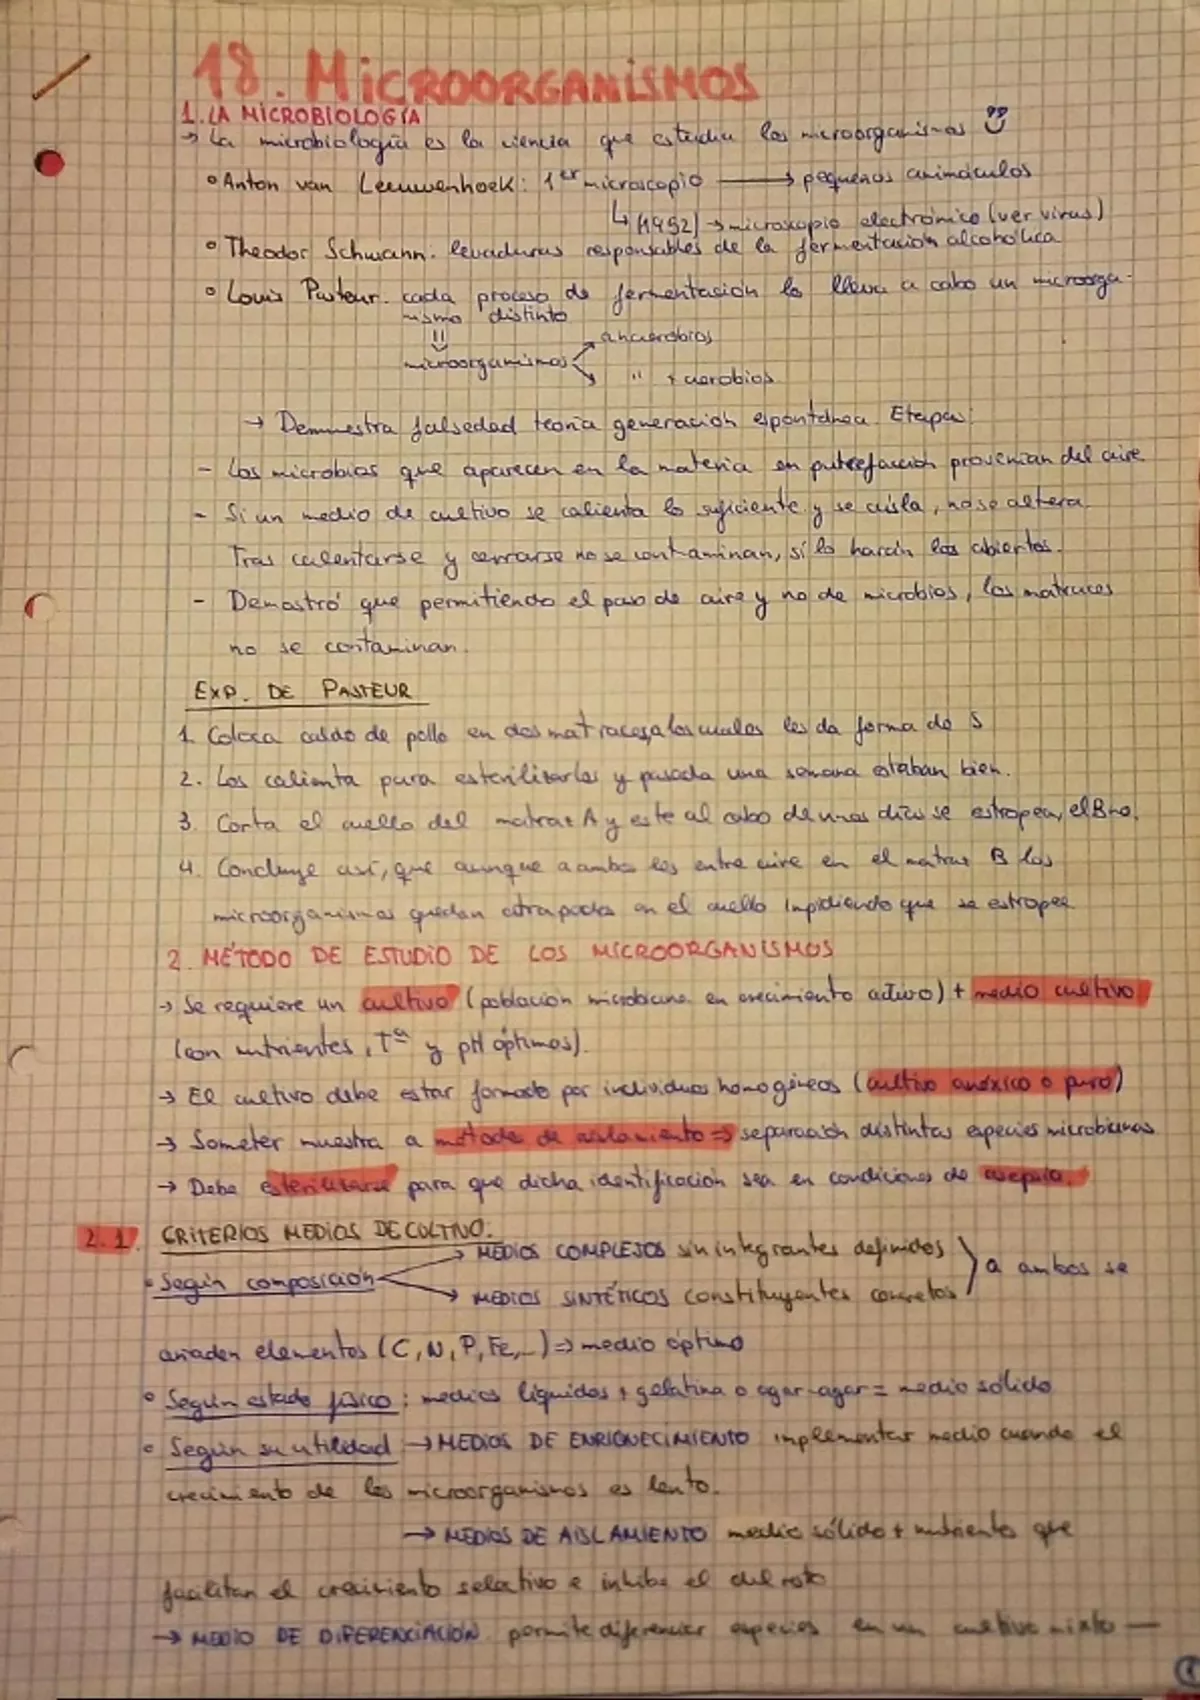 18. MICROORGANISMOS
1. LA MICROBIOLOGÍA
→ La microbiología es la ciencia que estudia los microorganismos
° Anton van Leeuwenhoek: 1er microscopio → pequeños animáculos
↳ (1952) → microscopio electrónico (ver virus)
° Theodor Schwann. levaduras responsables de la fermentación alcohólica
° Louis Pasteur. cada proceso de fermentación lo lleva a cabo un microorga-
nismo distinto
microorganismos anaerobios
" + aerobios
→ Demuestra falsedad teoría generación espontánea. Etapas:
- Los microbios que aparecen en la materia en putrefacción provenían del aire
- Si un medio de cultivo se calienta lo suficiente y se aísla, no se altera.
Tras calentarse y cerrarse no se contaminan, sí lo harán los abiertos.
- Demostró que permitiendo el paso de aire y no de microbios, los matraces
no se contaminan.
EXP. DE PASTEUR
1. Coloca caldo de pollo en dos matraces, a los cuales les da forma de S
2. Los calienta para esterilizarlos y pasada una semana estaban bien.
3. Corta el cuello del matraz A y este al cabo de unos días se estropea, el B no.
4. Concluye así, que aunque a ambos les entre aire en el matraz B los
microorganismos quedan atrapados en el cuello impidiendo que se estropee
2. MÉTODO DE ESTUDIO DE LOS MICROORGANISMOS
→ Se requiere un cultivo (población microbiana en crecimiento activo) + medio cultivo
(con nutrientes, Tª y pH óptimos).
→ El cultivo debe estar formado por individuos homogéneos (cultivo anóxico o puro)
→ Someter muestra a método de aislamiento ⇒ separación distintas especies microbianas
→ Debe esterilizarse para que dicha identificación sea en condiciones de asepsia.
2.1. CRITERIOS MEDIOS DE CULTIVO.
• Según composición → MEDIOS COMPLEJOS sin integrantes definidos
→ MEDIOS SINTÉTICOS constituyentes concretos } a ambos se
añaden elementos (C, N, P, Fe, ...) ⇒ medio óptimo
° Según estado físico: medios líquidos + gelatina o agar-agar = medio sólido
° Según su utilidad → MEDIOS DE ENRIQUECIMIENTO implementar medio cuando el
crecimiento de los microorganismos es lento.
→ MEDIOS DE AISLAMIENTO medio sólido + nutrientes que
facilitan el crecimiento selectivo e inhibe el del resto
→ MEDIO DE DIFERENCIACIÓN permite diferenciar especies en un cultivo mixto —
1